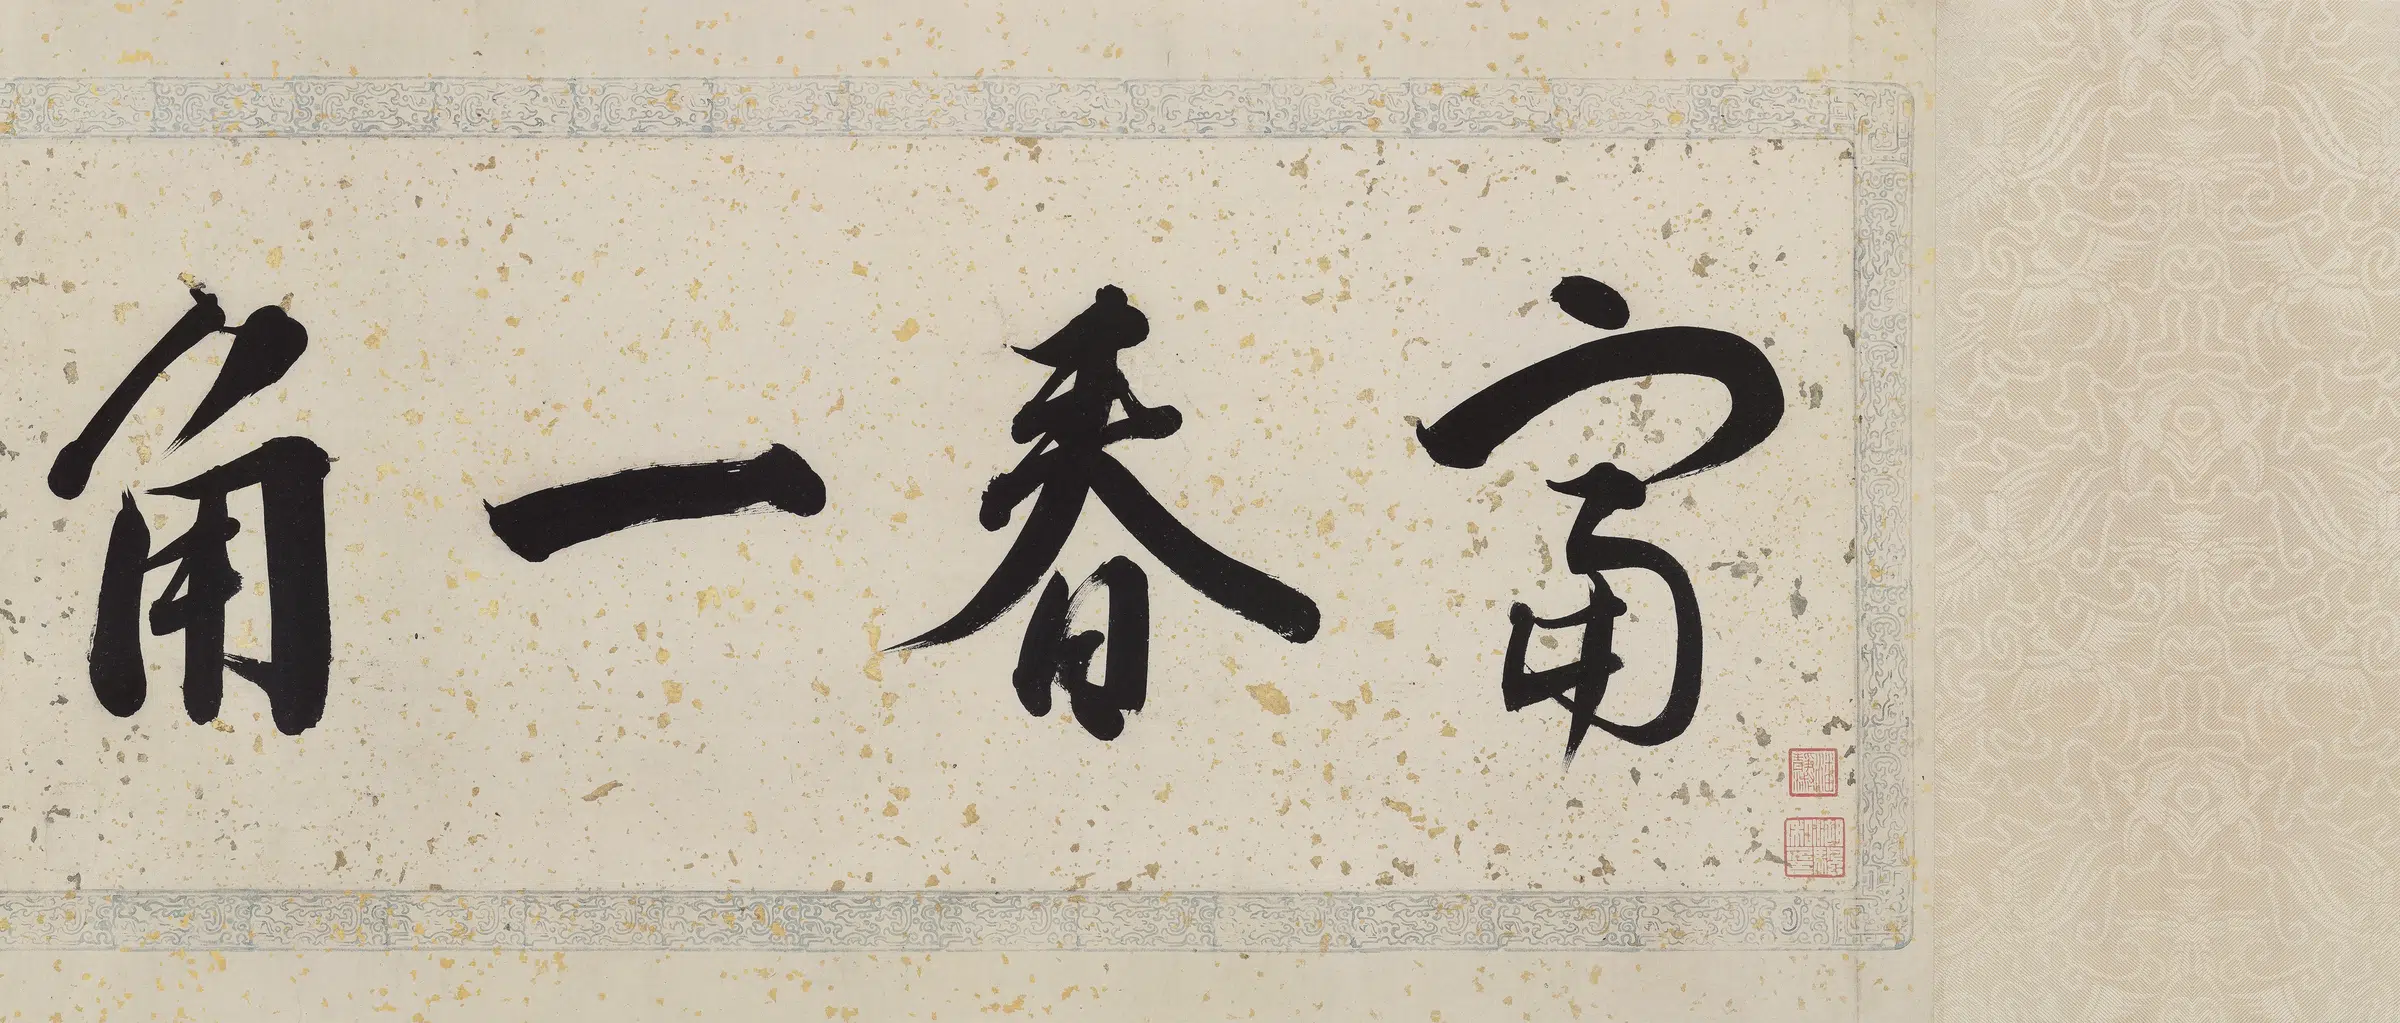 富春一角